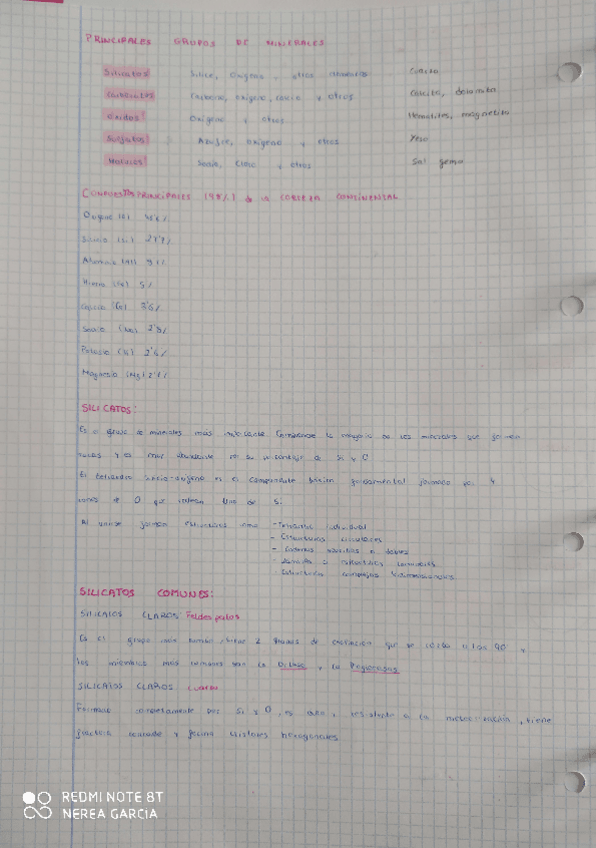 PRINCIPALES GRUPOS DE MINERALES
Silicatos: Silice, Oxígeno y otros Cuarzo
Carbonatos Carbono, oxígeno, calcio y otros Calcita, dolomita
Oxidos: Oxígeno y otros Hematites, magnetita
Sulfatos: Azufre, oxígeno y otros Yeso
Haluros: Sodio, Cloro y otros Sal gema
PRINCIPALES (98%) de la CORTEZA CONTINENTAL
Oxígeno (O)
Silicio (Si)
Aluminio (Al) 8'1%
Hierro (Fe) 5%
Calcio (Ca) 3'6%
Sodio (Na) 2'8%
Potasio (K) 2'6%
Magnesio (Mg) 2'1%
SILICATOS:
Es el grupo de minerales más importante Comprende la mayoría de los minerales que forman
rocas y es muy abundante de Si y O
El tetraedro silicio-oxígeno es el componente básico fundamental formado por 4
iones de O que rodean uno de Si
Al unirse forman estructuras como - Tetraedro individual
- Estructuras circulares
- Cadenas sencillas o dobles
- Láminas o estructuras laminares
- Estructuras complejas tridimensionales
SILICATOS COMUNES:
SILICATOS CLAROS Feldespatos
Es el grupo más común, tiene 2 planos de exfoliación que se a los 90 y
los miembros más comunes son la Ortosa y la Plagioclasa
SILICATOS CLAROS Cuarzo
Formado completamente por Si y O, es duro, resistente a la meteorización, tiene
fractura concoide y forma cristales hexagonales
REDMI NOTE 8T
NEREA GARCIA